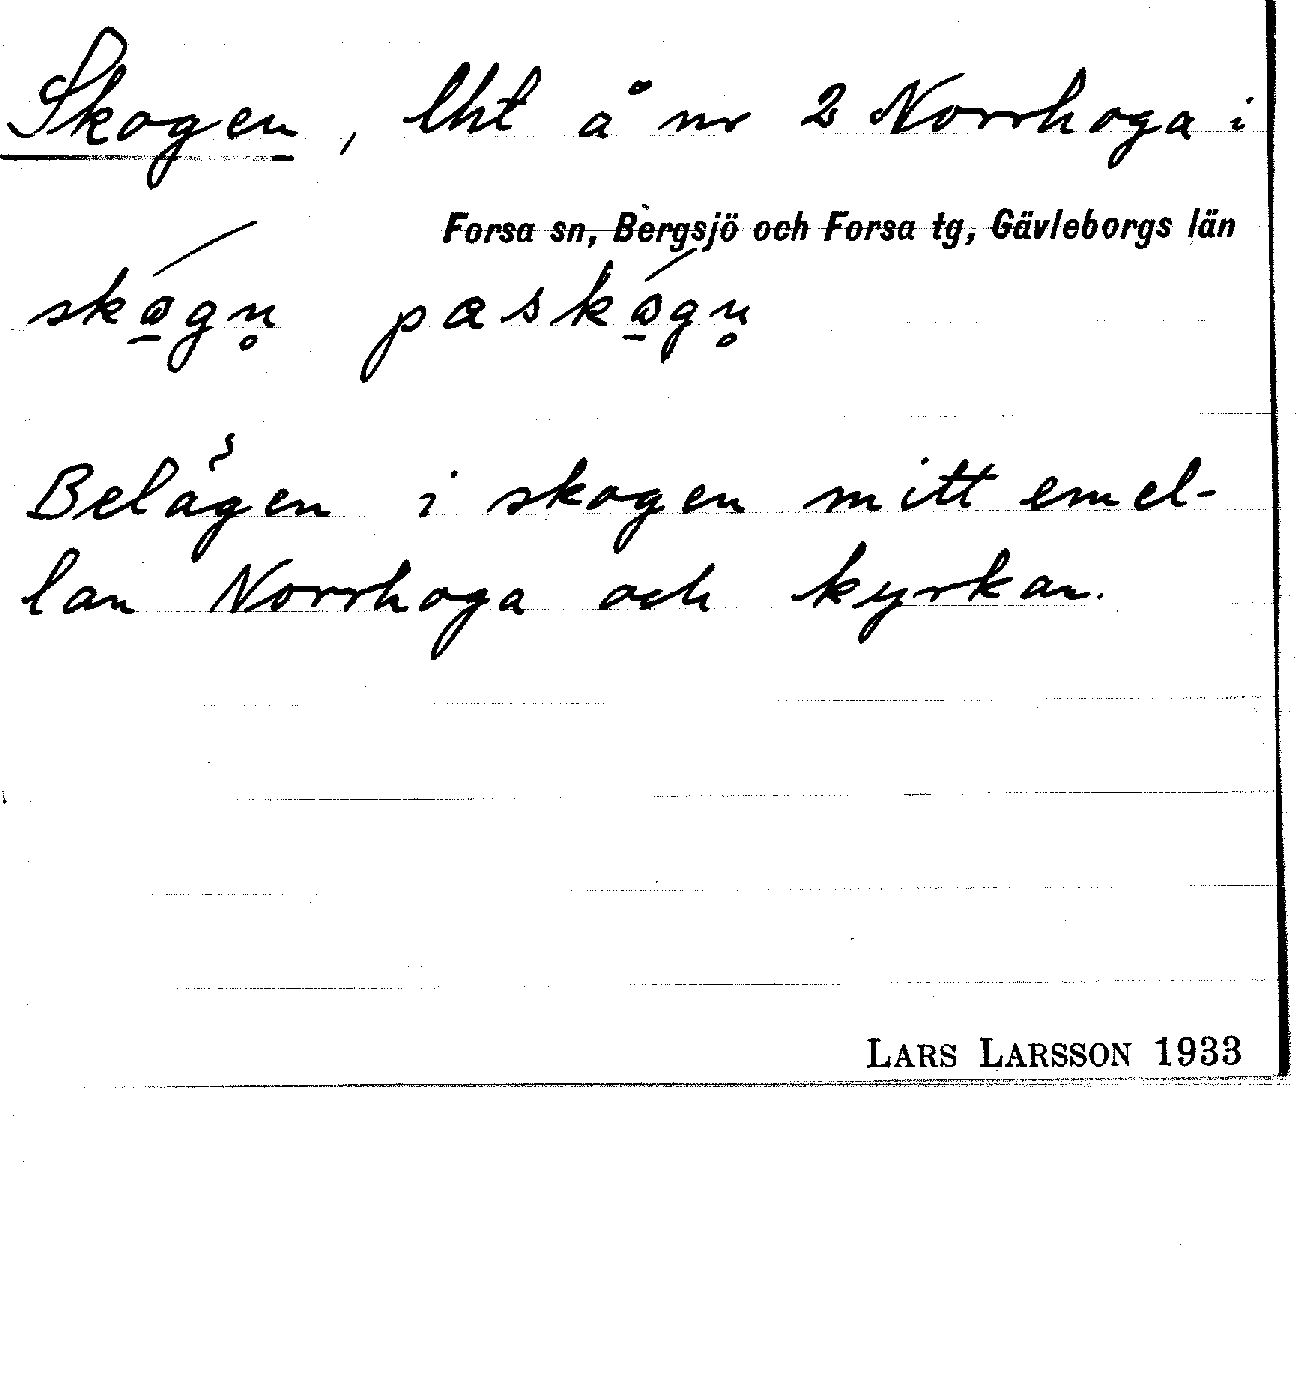 Skogen, lht å nr 2 Norrhoga i
Forsa sn, Bergsjö och Forsa tg, Gävleborgs län
Belägen i skogen mitt emel-
lan Norrhoga och kyrkan.
LARS LARSSON 1933